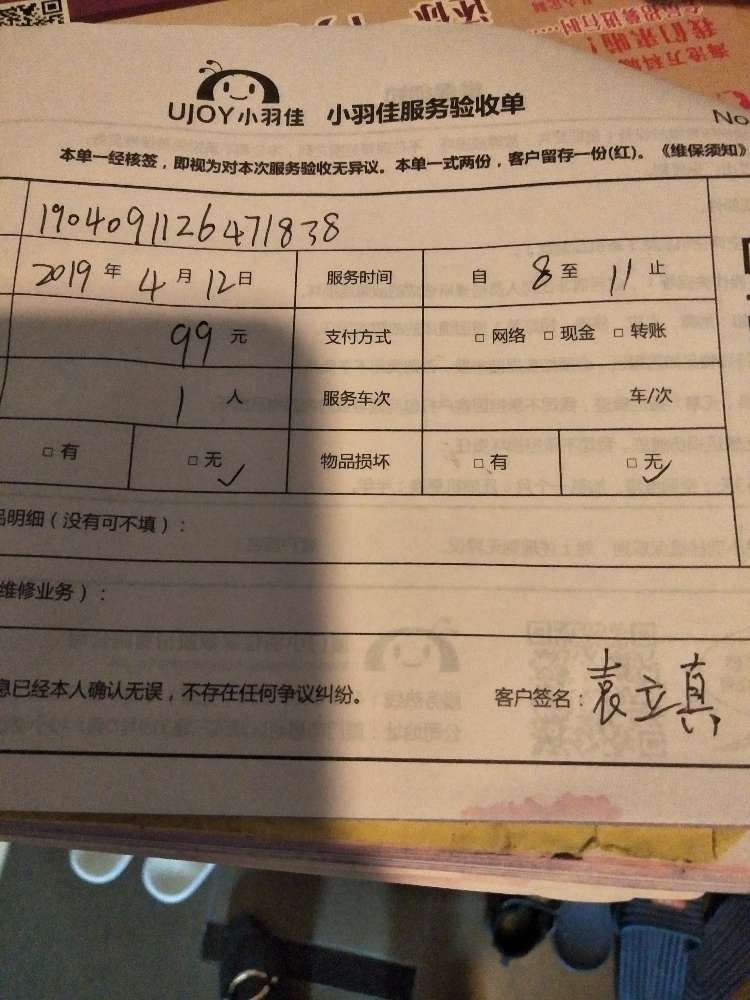 我们来啦!
UJOY小羽佳 小羽佳服务验收单
No
本单一经核签,即视为对本次服务验收无异议。本单一式两份,客户留存一份(红)。《维保须知》
1904091126471838
2019年4月12日 服务时间 自8至11止
99元 支付方式 □网络 □现金 □转账
1人 服务车次 车/次
□有 □无✓ 物品损坏 □有 □无✓
明细(没有可不填):
维修业务):
息已经本人确认无误,不存在任何争议纠纷。 客户签名:袁立真